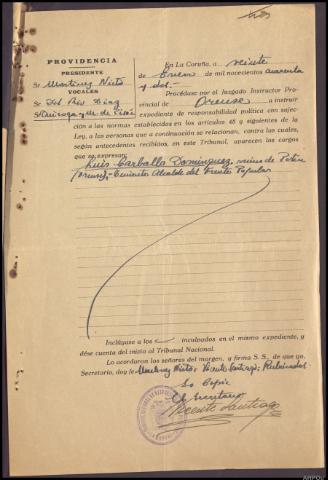 PROVIDENCIA
PRESIDENTE
Sr. Martinez Nieto
VOCALES
Sr. Del Rio Diaz
Sr.
En La Coruña, a veinte
de Enero de mil novecientos cuarenta
y dos.-
Procédase por el Juzgado Instructor Pro-
vincial de Orense a instruir
expediente de responsabilidad política con suje-
ción a las normas establecidas en los artículos 45 y siguientes de la
Ley, a las personas que a continuación se relacionan, contra las cuales,
según antecedentes recibidos, en este Tribunal, aparecen los cargos
que se expresan:
Luis Carballo Dominguez, vecino de
Orense, Alcalde del Frente Popular
Inclúyase a los inculpados en el mismo expediente, y
dése cuenta del inicio al Tribunal Nacional.
Lo acordaron los señores del margen, y firma S. S. de que yo,
Secretario, doy fe Martinez Nieto; Vicente Santiago; Rubricados
Es Copia
El Secretario
Vicente Santiago